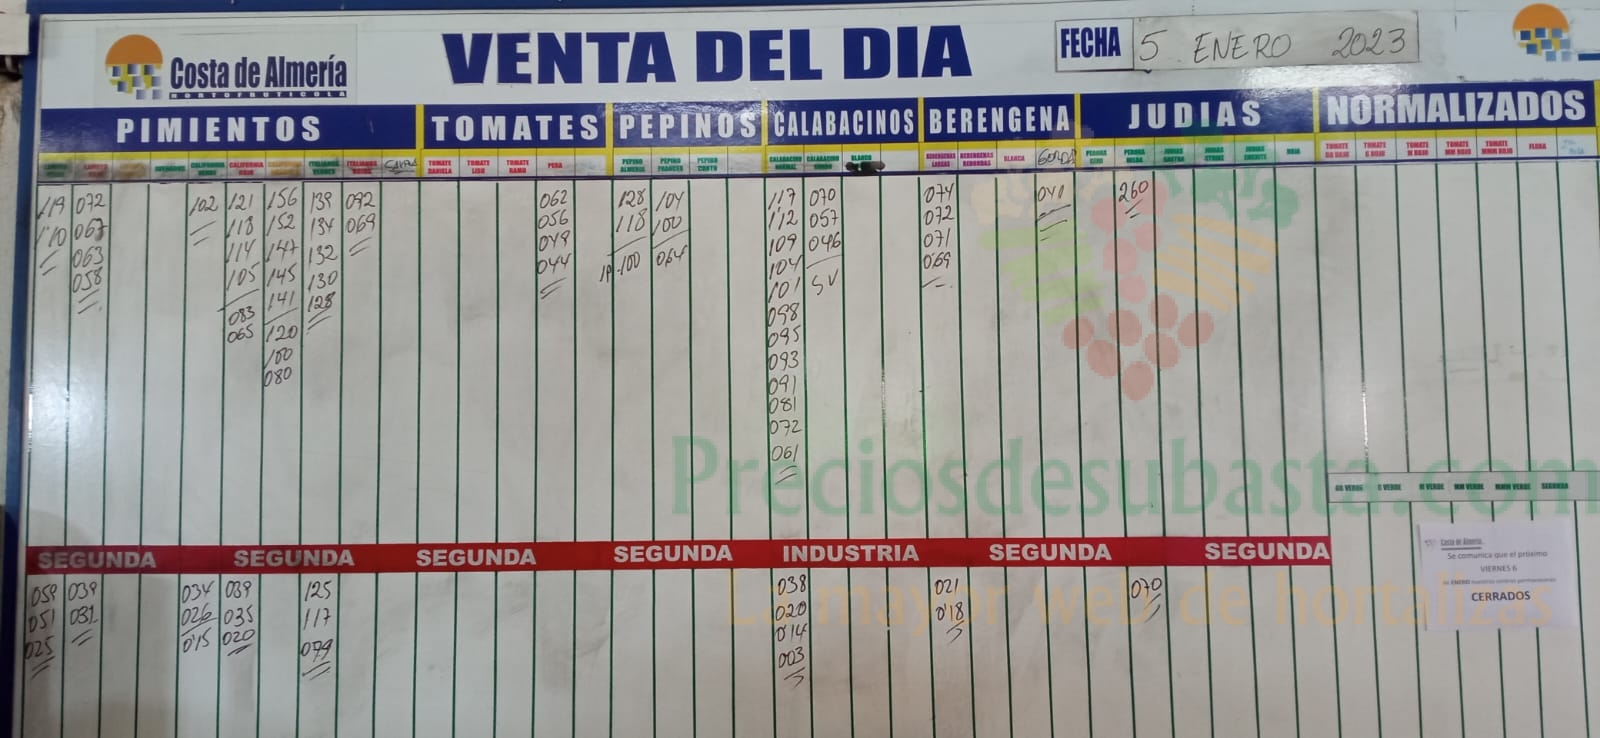 Costa de Almería
HORTOFRUTICOLA
VENTA DEL DIA
FECHA 5 ENERO 2023
PIMIENTOS TOMATES PEPINOS CALABACINOS BERENGENA JUDIAS NORMALIZADOS
CALIFORNIA VERDE CALIFORNIA ROJO ITALIANOS VERDES ITALIANOS ROJOS TOMATE DANIELA TOMATE LISO TOMATE RAMO PERA PEPINO ALMERIA PEPINO FRANCES PEPINO CORTO CALABACINO NORMAL CALABACINO GORDO BLANCO BERENGENAS LARGAS BERENGENAS REDONDAS BLANCA GORDA PERONA ROJA TOMATE GG ROJO TOMATE G ROJO TOMATE M ROJO TOMATE MM ROJO TOMATE MMM ROJO FLORA
119 072 102 121 156 139 092 062 128 104 117 070 074 041 260
110 067 118 152 134 069 056 118 100 112 057 072
063 114 147 132 049 100 064 109 046 071
058 105 145 130 044 104 SV 069
083 141 128 101
065 120 098
100 095
080 093
091
081
072
061
GG VERDE G VERDE M VERDE MM VERDE MMM VERDE SEGUNDA
Preciosdesubasta.com
SEGUNDA SEGUNDA SEGUNDA SEGUNDA INDUSTRIA SEGUNDA SEGUNDA
059 039 034 039 125 038 021 070
051 031 026 035 117 020 018
025 015 020 079 014
003
La mayor web de hortalizas
Costa de Almería
Se comunica que el próximo
VIERNES 6
de ENERO nuestros centros permanecerán
CERRADOS